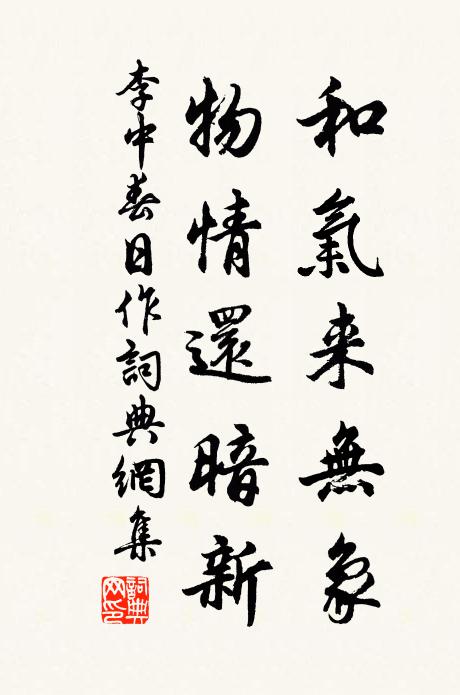 和氣来無象
物情還暗新
李中春日作詞典網集
詞典網印